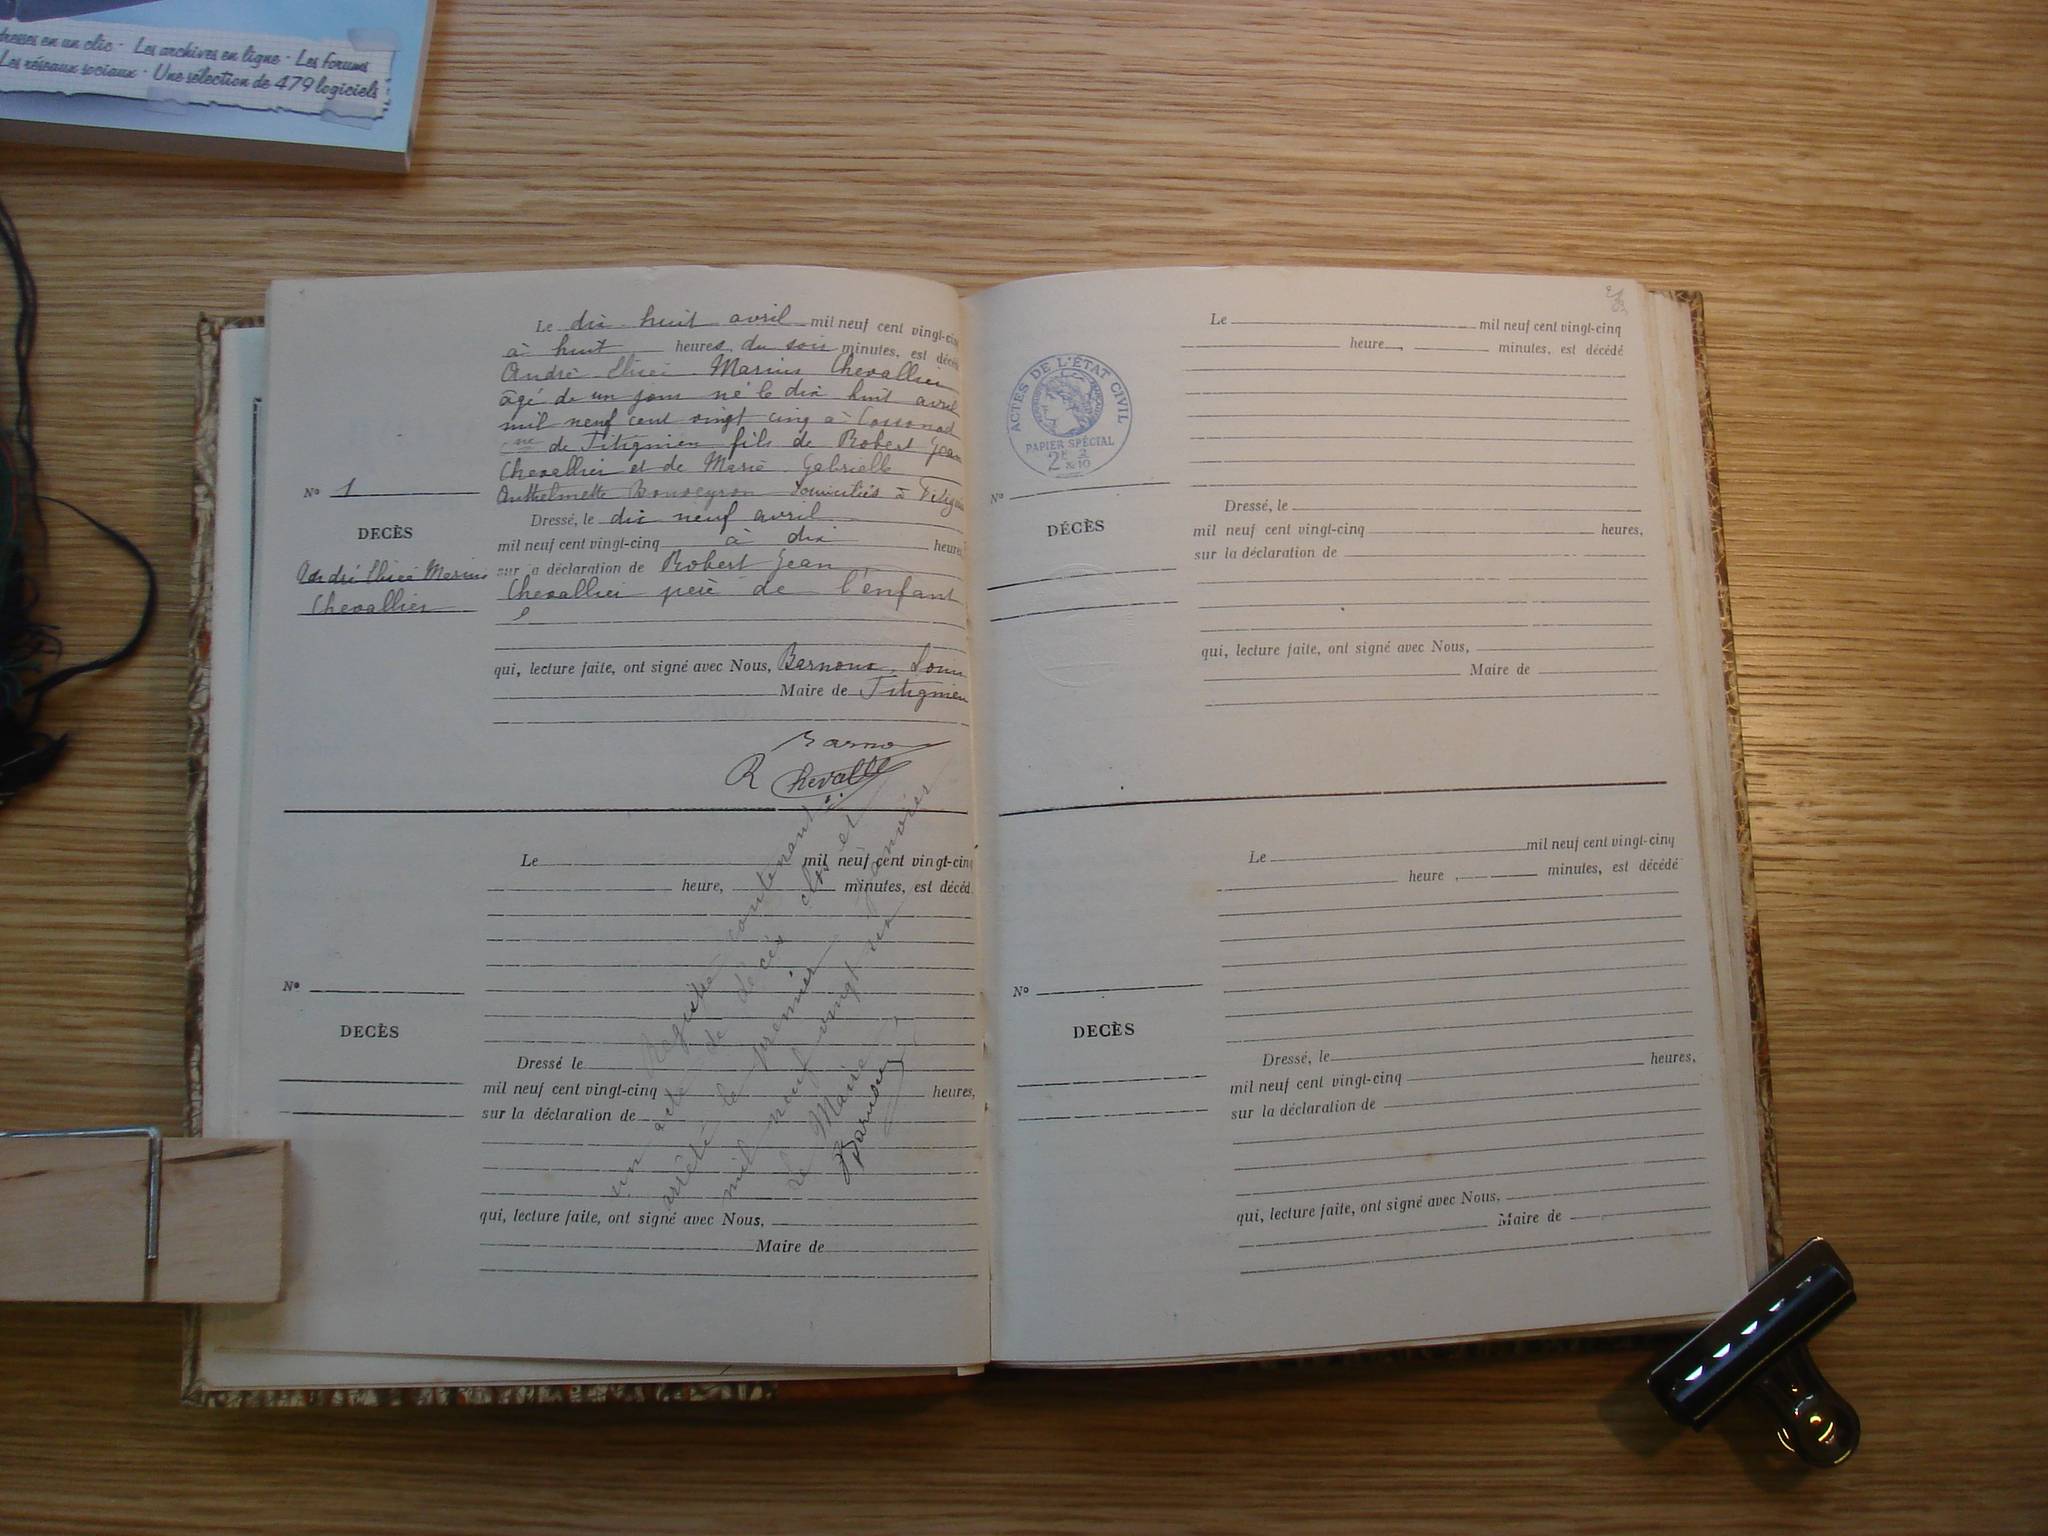 dresses en un clic - Les archives en ligne - Les forums
Les réseaux sociaux - Une sélection de 479 logiciels
Le dix huit avril mil neuf cent vingt-cin
à huit heures du soir minutes, est décéd
André Marius Chevallier
âgé de un jour né le dix huit avril
mil neuf cent vingt cinq à
de fils de Robert Jean
Chevallier et de Marie Gabrielle
Anthelmette domiciliés à
Dressé, le dix neuf avril
mil neuf cent vingt-cinq à dix heures
sur a déclaration de Robert Jean
Chevallier père de l'enfant
qui, lecture faite, ont signé avec Nous, Barnoux Louis
Maire de
R Chevalle
Nº 1
DECÈS
André Marius
Chevallier
Le mil neuf cent vingt-cinq
heure, minutes, est décéd
Nº
DECÈS
Dressé le
mil neuf cent vingt-cinq heures,
sur la déclaration de
qui, lecture faite, ont signé avec Nous,
Maire de
Registre contenant
un acte de décès clos et
arrêté le premier janvier
mil neuf vingt six
Le Maire
Barnoux
Le mil neuf cent vingt-cinq
heure minutes, est décédé
ACTES DE L'ÉTAT CIVIL
PAPIER SPÉCIAL
2F
Nº
DÉCÈS
Dressé, le
mil neuf cent vingt-cinq heures,
sur la déclaration de
qui, lecture faite, ont signé avec Nous,
Maire de
Le mil neuf cent vingt-cinq
heure , minutes, est décédé
Nº
DECÈS
Dressé, le
mil neuf cent vingt-cinq heures,
sur la déclaration de
qui, lecture faite, ont signé avec Nous,
Maire de